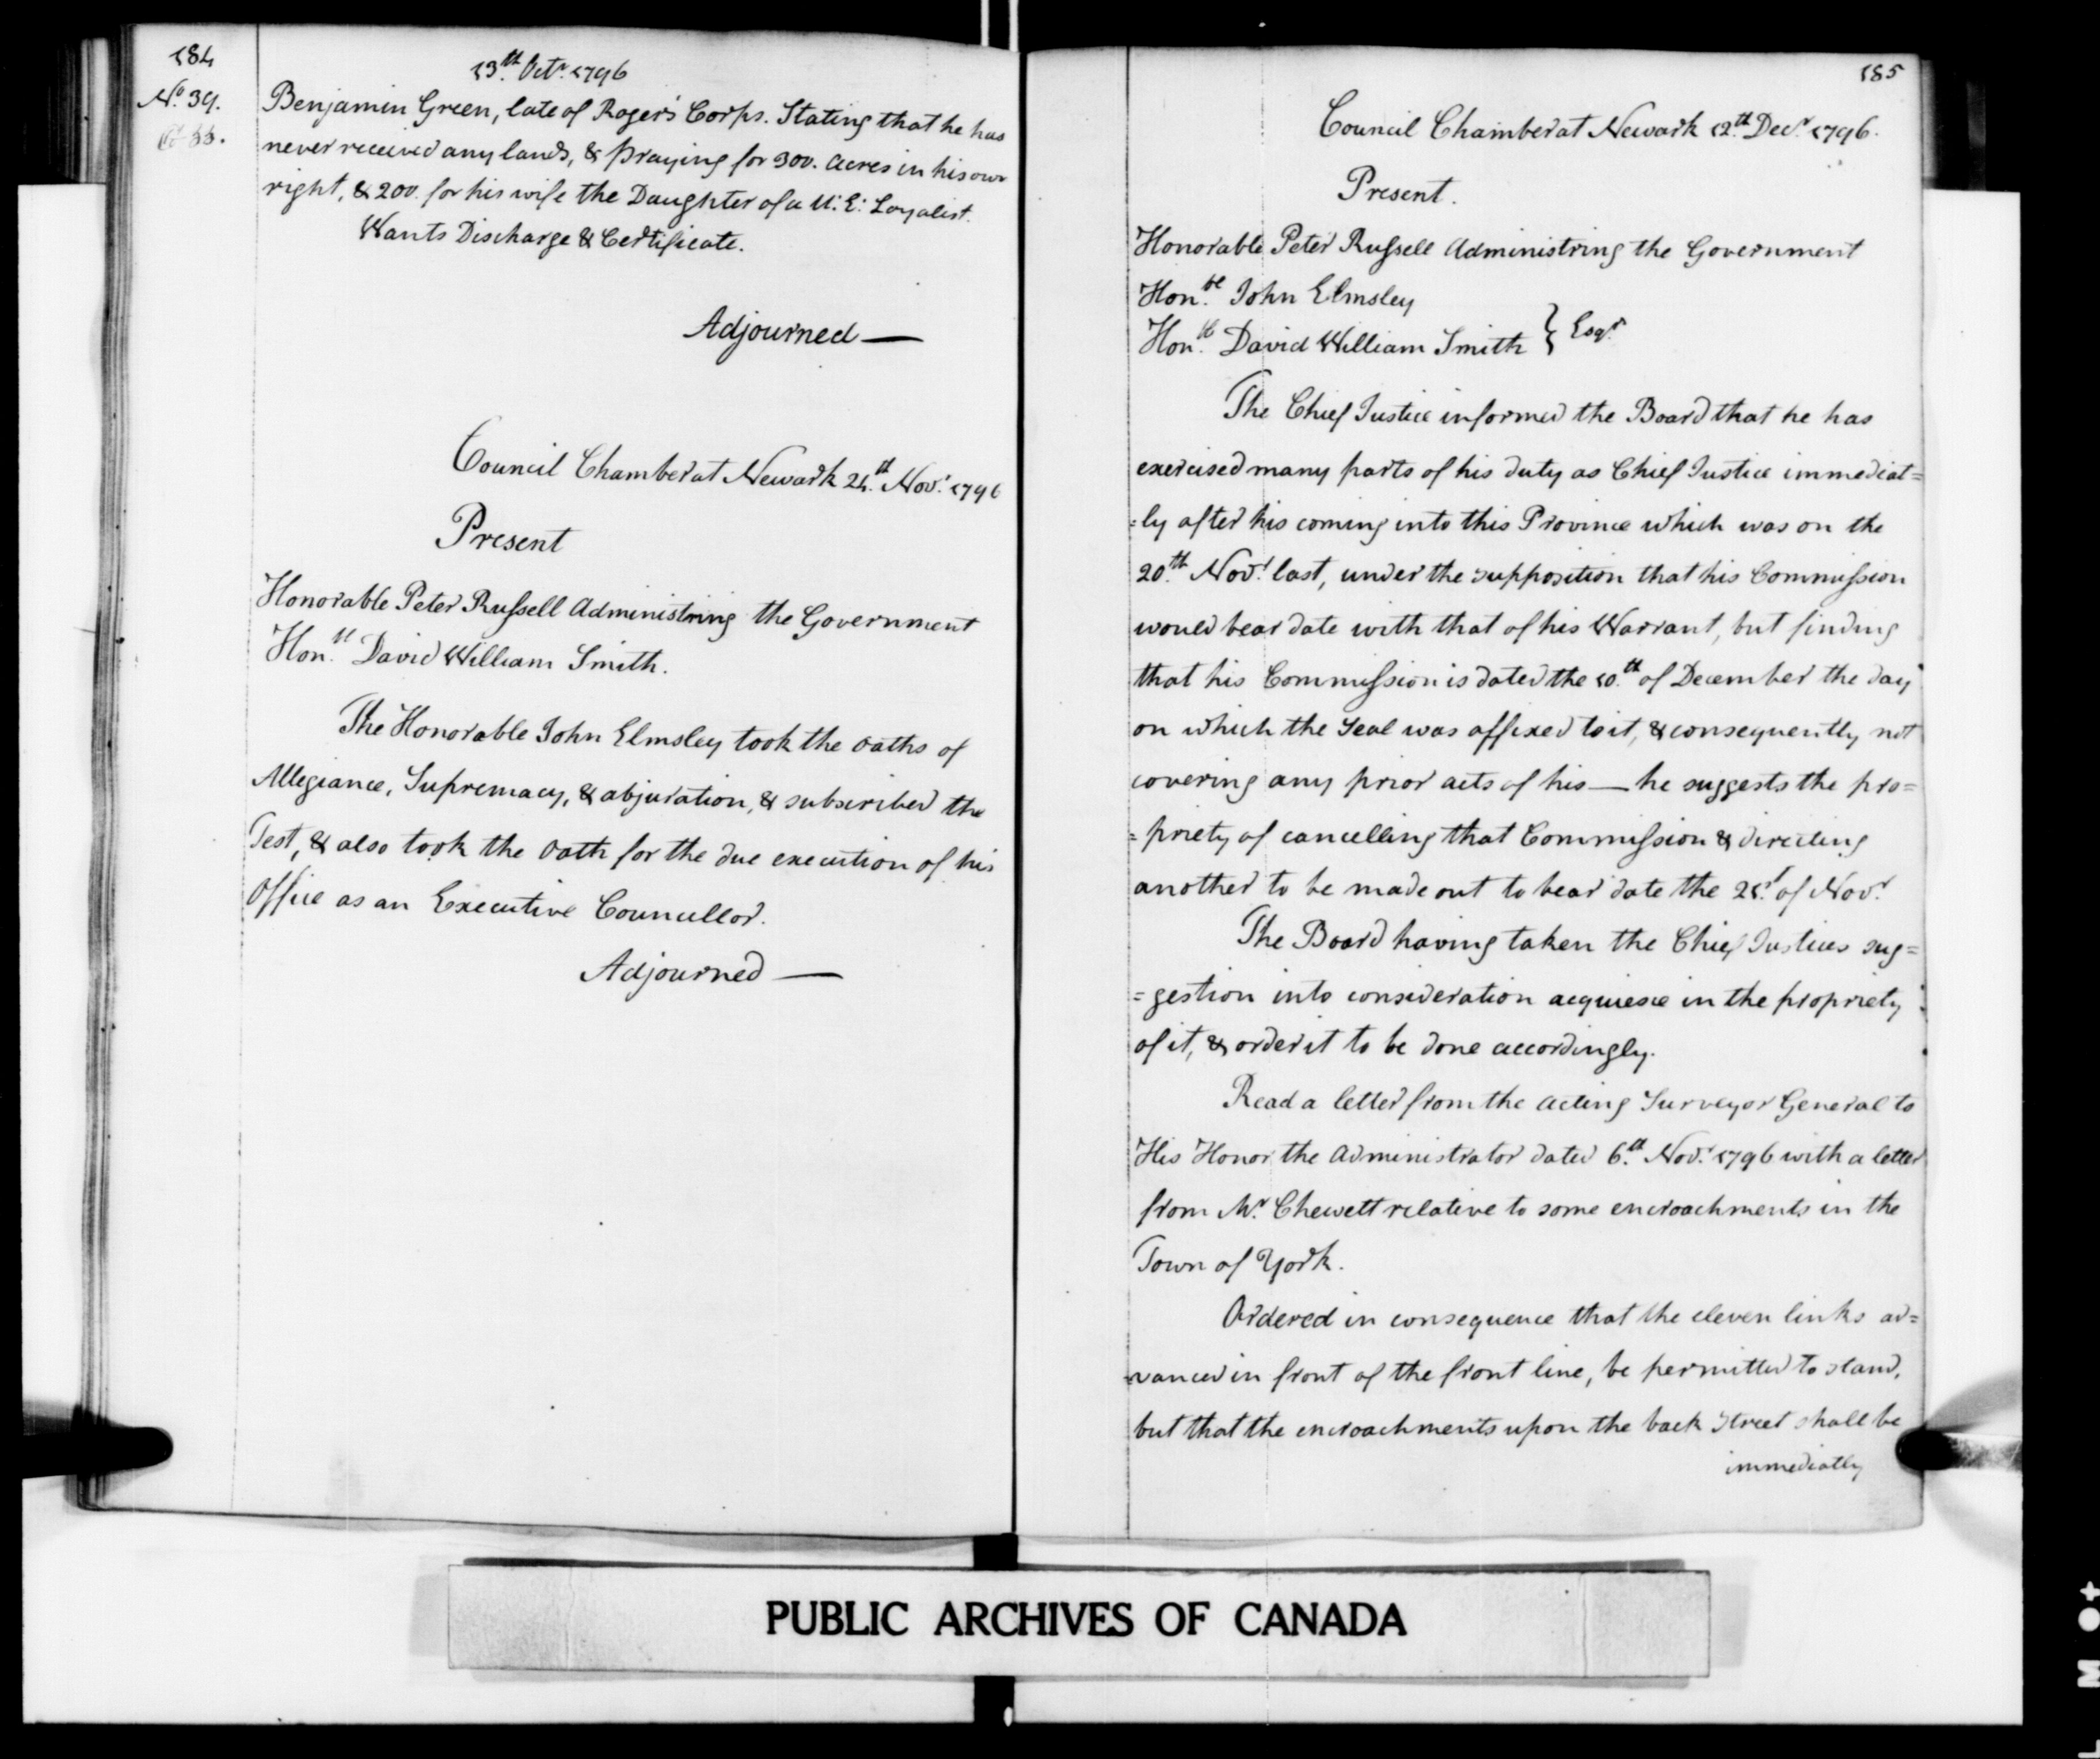 184
13th Octr. 1796
No. 39.
Benjamin Green, late of Roger's Corps. Stating that he has
never received any lands, & praying for 300. acres in his own
right, & 200. for his wife the Daughter of a U: E: Loyalist.
Wants Discharge & Certificate.
Adjourned —
Council Chamber at Newark 24.th Nov.r 1796
Present
Honorable Peter Russell Administring the Government
Hon.ble David William Smith.
The Honorable John Elmsley took the oaths of
Allegiance, Supremacy, & abjuration, & subscribed the
Test, & also took the Oath for the due execution of his
Office as an Executive Councellor.
Adjourned —
185
Council Chamber at Newark 12.th Dec.r 1796.
Present.
Honorable Peter Russell Administring the Government
Hon.ble John Elmsley
Hon.ble David William Smith } Esqrs
The Chief Justice informed the Board that he has
exercised many parts of his duty as Chief Justice immediat=
=ly after his coming into this Province which was on the
20.th Nov.r last, under the supposition that his Commission
would bear date with that of his Warrant, but finding
that his Commission is dated the 10.th of December the day
on which the Seal was affixed to it, & consequently not
covering any prior acts of his — he suggests the pro=
=priety of cancelling that Commission & directing
another to be made out to bear date the 21.st of Nov.r
The Board having taken the Chief Justices sug=
=gestion into consideration acquiesce in the propriety
of it, & order it to be done accordingly.
Read a letter from the Acting Surveyor General to
His Honor the Administrator dated 6.th Nov.r 1796 with a letter
from Mr. Chewett relative to some encroachments in the
Town of York.
Ordered in consequence that the eleven links ad=
=vanced in front of the front line, be permitted to stand,
but that the encroachments upon the back Street shall be
immediatly
PUBLIC ARCHIVES OF CANADA